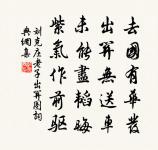 去國有華發
出關無送車
未能盡韜晦
紫氣作前驅
劉克莊老子出關圖詞